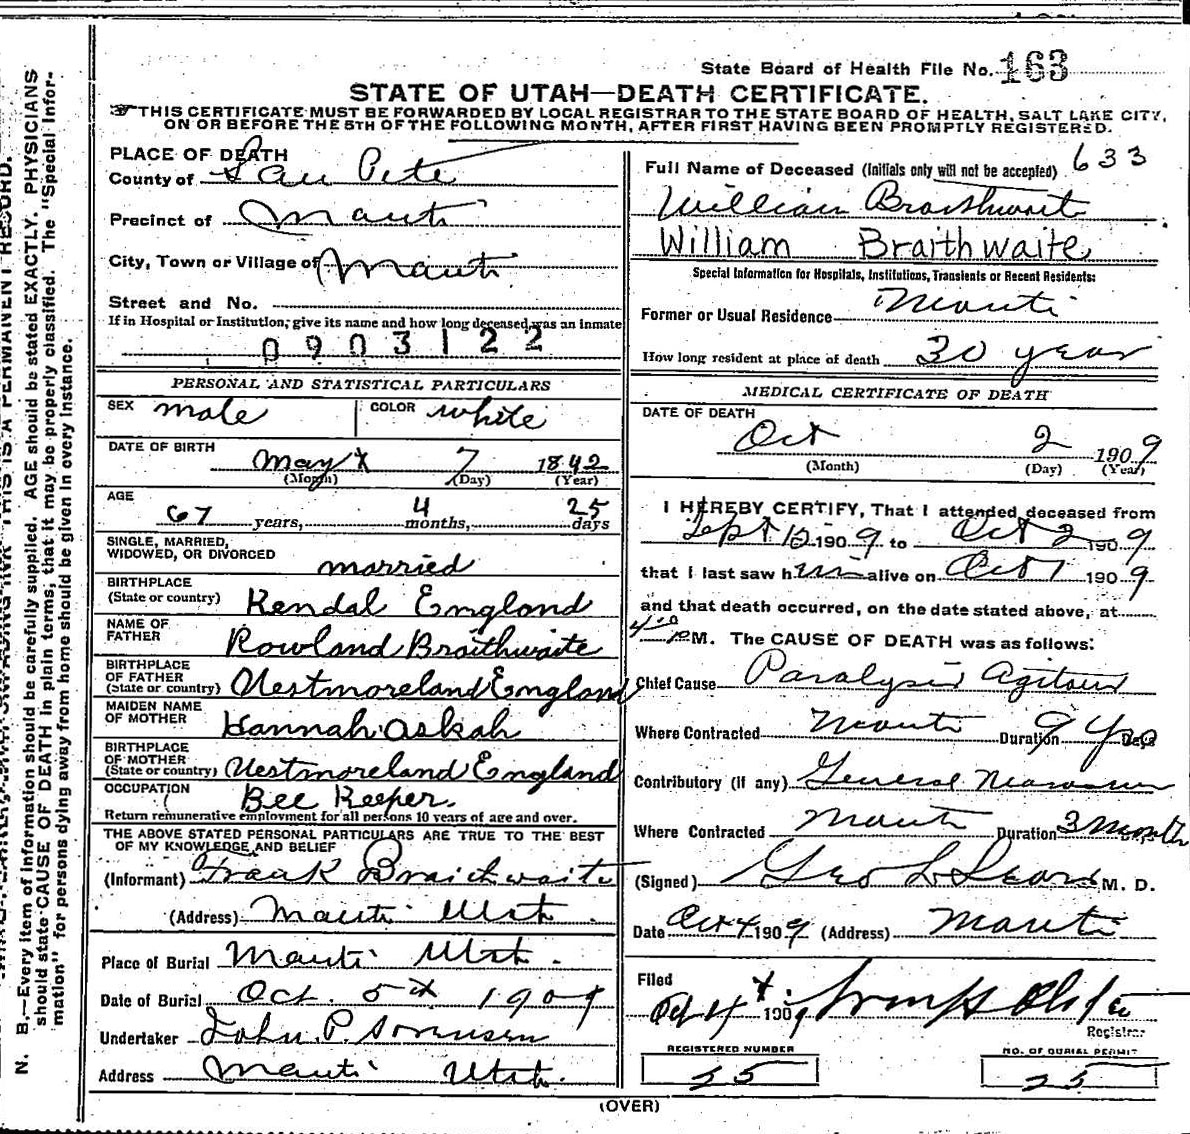 State Board of Health File No. 163
STATE OF UTAH—DEATH CERTIFICATE.
THIS CERTIFICATE MUST BE FORWARDED BY LOCAL REGISTRAR TO THE STATE BOARD OF HEALTH, SALT LAKE CITY,
ON OR BEFORE THE 5TH OF THE FOLLOWING MONTH, AFTER FIRST HAVING BEEN PROMPTLY REGISTERED.
PLACE OF DEATH
County of San Pete
Precinct of Manti
City, Town or Village of Manti
Street and No.
If in Hospital or Institution, give its name and how long deceased was an inmate
0903122
PERSONAL AND STATISTICAL PARTICULARS
SEX male COLOR white
DATE OF BIRTH May 7 1842
(Month) (Day) (Year)
AGE 67 years, 4 months, 25 days
SINGLE, MARRIED,
WIDOWED, OR DIVORCED married
BIRTHPLACE
(State or country) Kendal England
NAME OF
FATHER Rowland Braithwaite
BIRTHPLACE
OF FATHER
(State or country) Westmoreland England
MAIDEN NAME
OF MOTHER Hannah Askah
BIRTHPLACE
OF MOTHER
(State or country) Westmoreland England
OCCUPATION Bee Keeper.
Return remunerative employment for all persons 10 years of age and over.
THE ABOVE STATED PERSONAL PARTICULARS ARE TRUE TO THE BEST
OF MY KNOWLEDGE AND BELIEF
(Informant) Frank Braithwaite
(Address) Manti Utah.
Place of Burial Manti Utah.
Date of Burial Oct. 5th 1909
Undertaker John P. Sorensen
Address Manti Utah.
633
Full Name of Deceased (Initials only will not be accepted)
William Braithwaite
William Braithwaite
Special Information for Hospitals, Institutions, Transients or Recent Residents:
Former or Usual Residence Manti
How long resident at place of death 30 year
MEDICAL CERTIFICATE OF DEATH
DATE OF DEATH
Oct 2 1909
(Month) (Day) (Year)
I HEREBY CERTIFY, That I attended deceased from
Sept 12 1909 to Oct 2 1909
that I last saw him alive on Oct 1 1909
and that death occurred, on the date stated above, at
M. The CAUSE OF DEATH was as follows:
Chief Cause Paralysis Agitans
Where Contracted Manti Duration 9 Yrs Days
Contributory (if any) General
Where Contracted Manti Duration 3 month
(Signed) Geo L Sears M. D.
Date Oct 4 1909 (Address) Manti
Filed
Oct 4 1909
Registrar
REGISTERED NUMBER NO. OF BURIAL PERMIT
25 25
(OVER)
N. B.—Every item of information should be carefully supplied. AGE should be stated EXACTLY. PHYSICIANS
should state CAUSE OF DEATH in plain terms, that it may be properly classified. The "Special Infor-
mation" for persons dying away from home should be given in every instance.
THIS IS A PERMANENT RECORD.